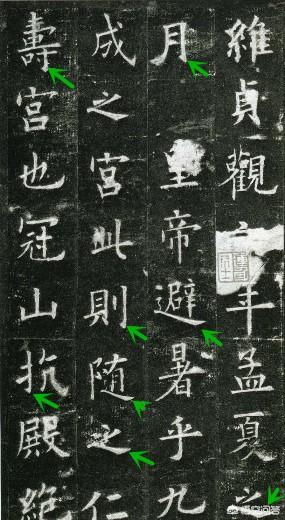 維貞觀年孟夏之
月皇帝避暑乎九
成之宮此則随之仁
壽宮也冠山抗殿絕
悟空问答